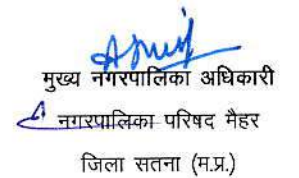 मुख्य नगरपालिका अधिकारी
नगरपालिका परिषद मैहर
जिला सतना (म.प्र.)